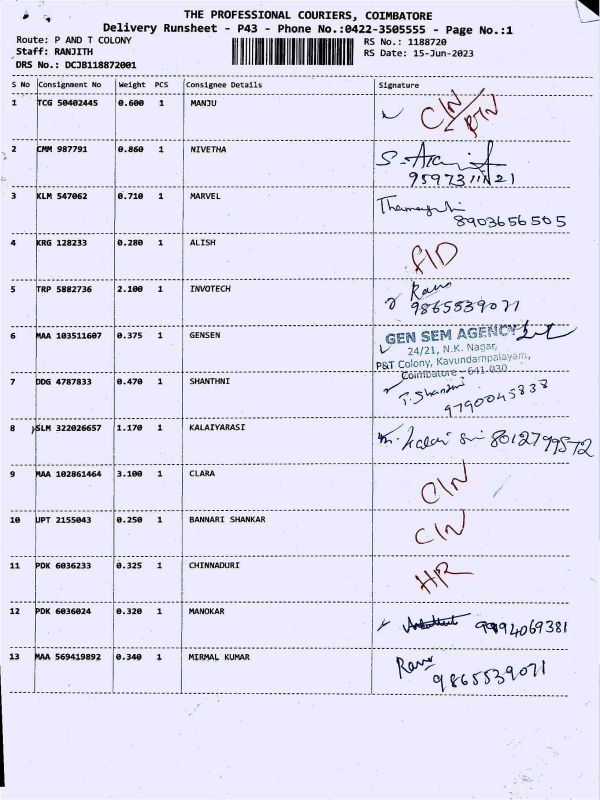 THE PROFESSIONAL COURIERS, COIMBATORE
Delivery Runsheet - P43 - Phone No.:0422-3505555 - Page No.:1
Route: P AND T COLONY RS No.: 1188720
Staff: RANJITH RS Date: 15-Jun-2023
DRS No.: DCJB118872001
S No Consignment No Weight PCS Consignee Details Signature
1 TCG 50402445 0.600 1 MANJU CIN
2 CMM 987791 0.860 1 NIVETHA
9597311121
3 KLM 547062 0.710 1 MARVEL
8903656505
4 KRG 128233 0.280 1 ALISH FID
5 TRP 5882736 2.100 1 INVOTECH Ravi
9865539071
6 MAA 103511607 0.375 1 GENSEN GEN SEM AGENCY
24/21, N.K. Nagar,
P&T Colony, Kavundampalayam,
Coimbatore - 641 030
7 DDG 4787833 0.470 1 SHANTHNI T. Shanthni
9790045838
8 SLM 322026657 1.170 1 KALAIYARASI 8012799572
9 MAA 102861464 3.100 1 CLARA CIN
10 UPT 2155043 0.250 1 BANNARI SHANKAR CIN
11 PDK 6036233 0.325 1 CHINNADURI HR
12 PDK 6036024 0.320 1 MANOKAR 9994069381
13 MAA 569419892 0.340 1 MIRMAL KUMAR Ravi
9865539071